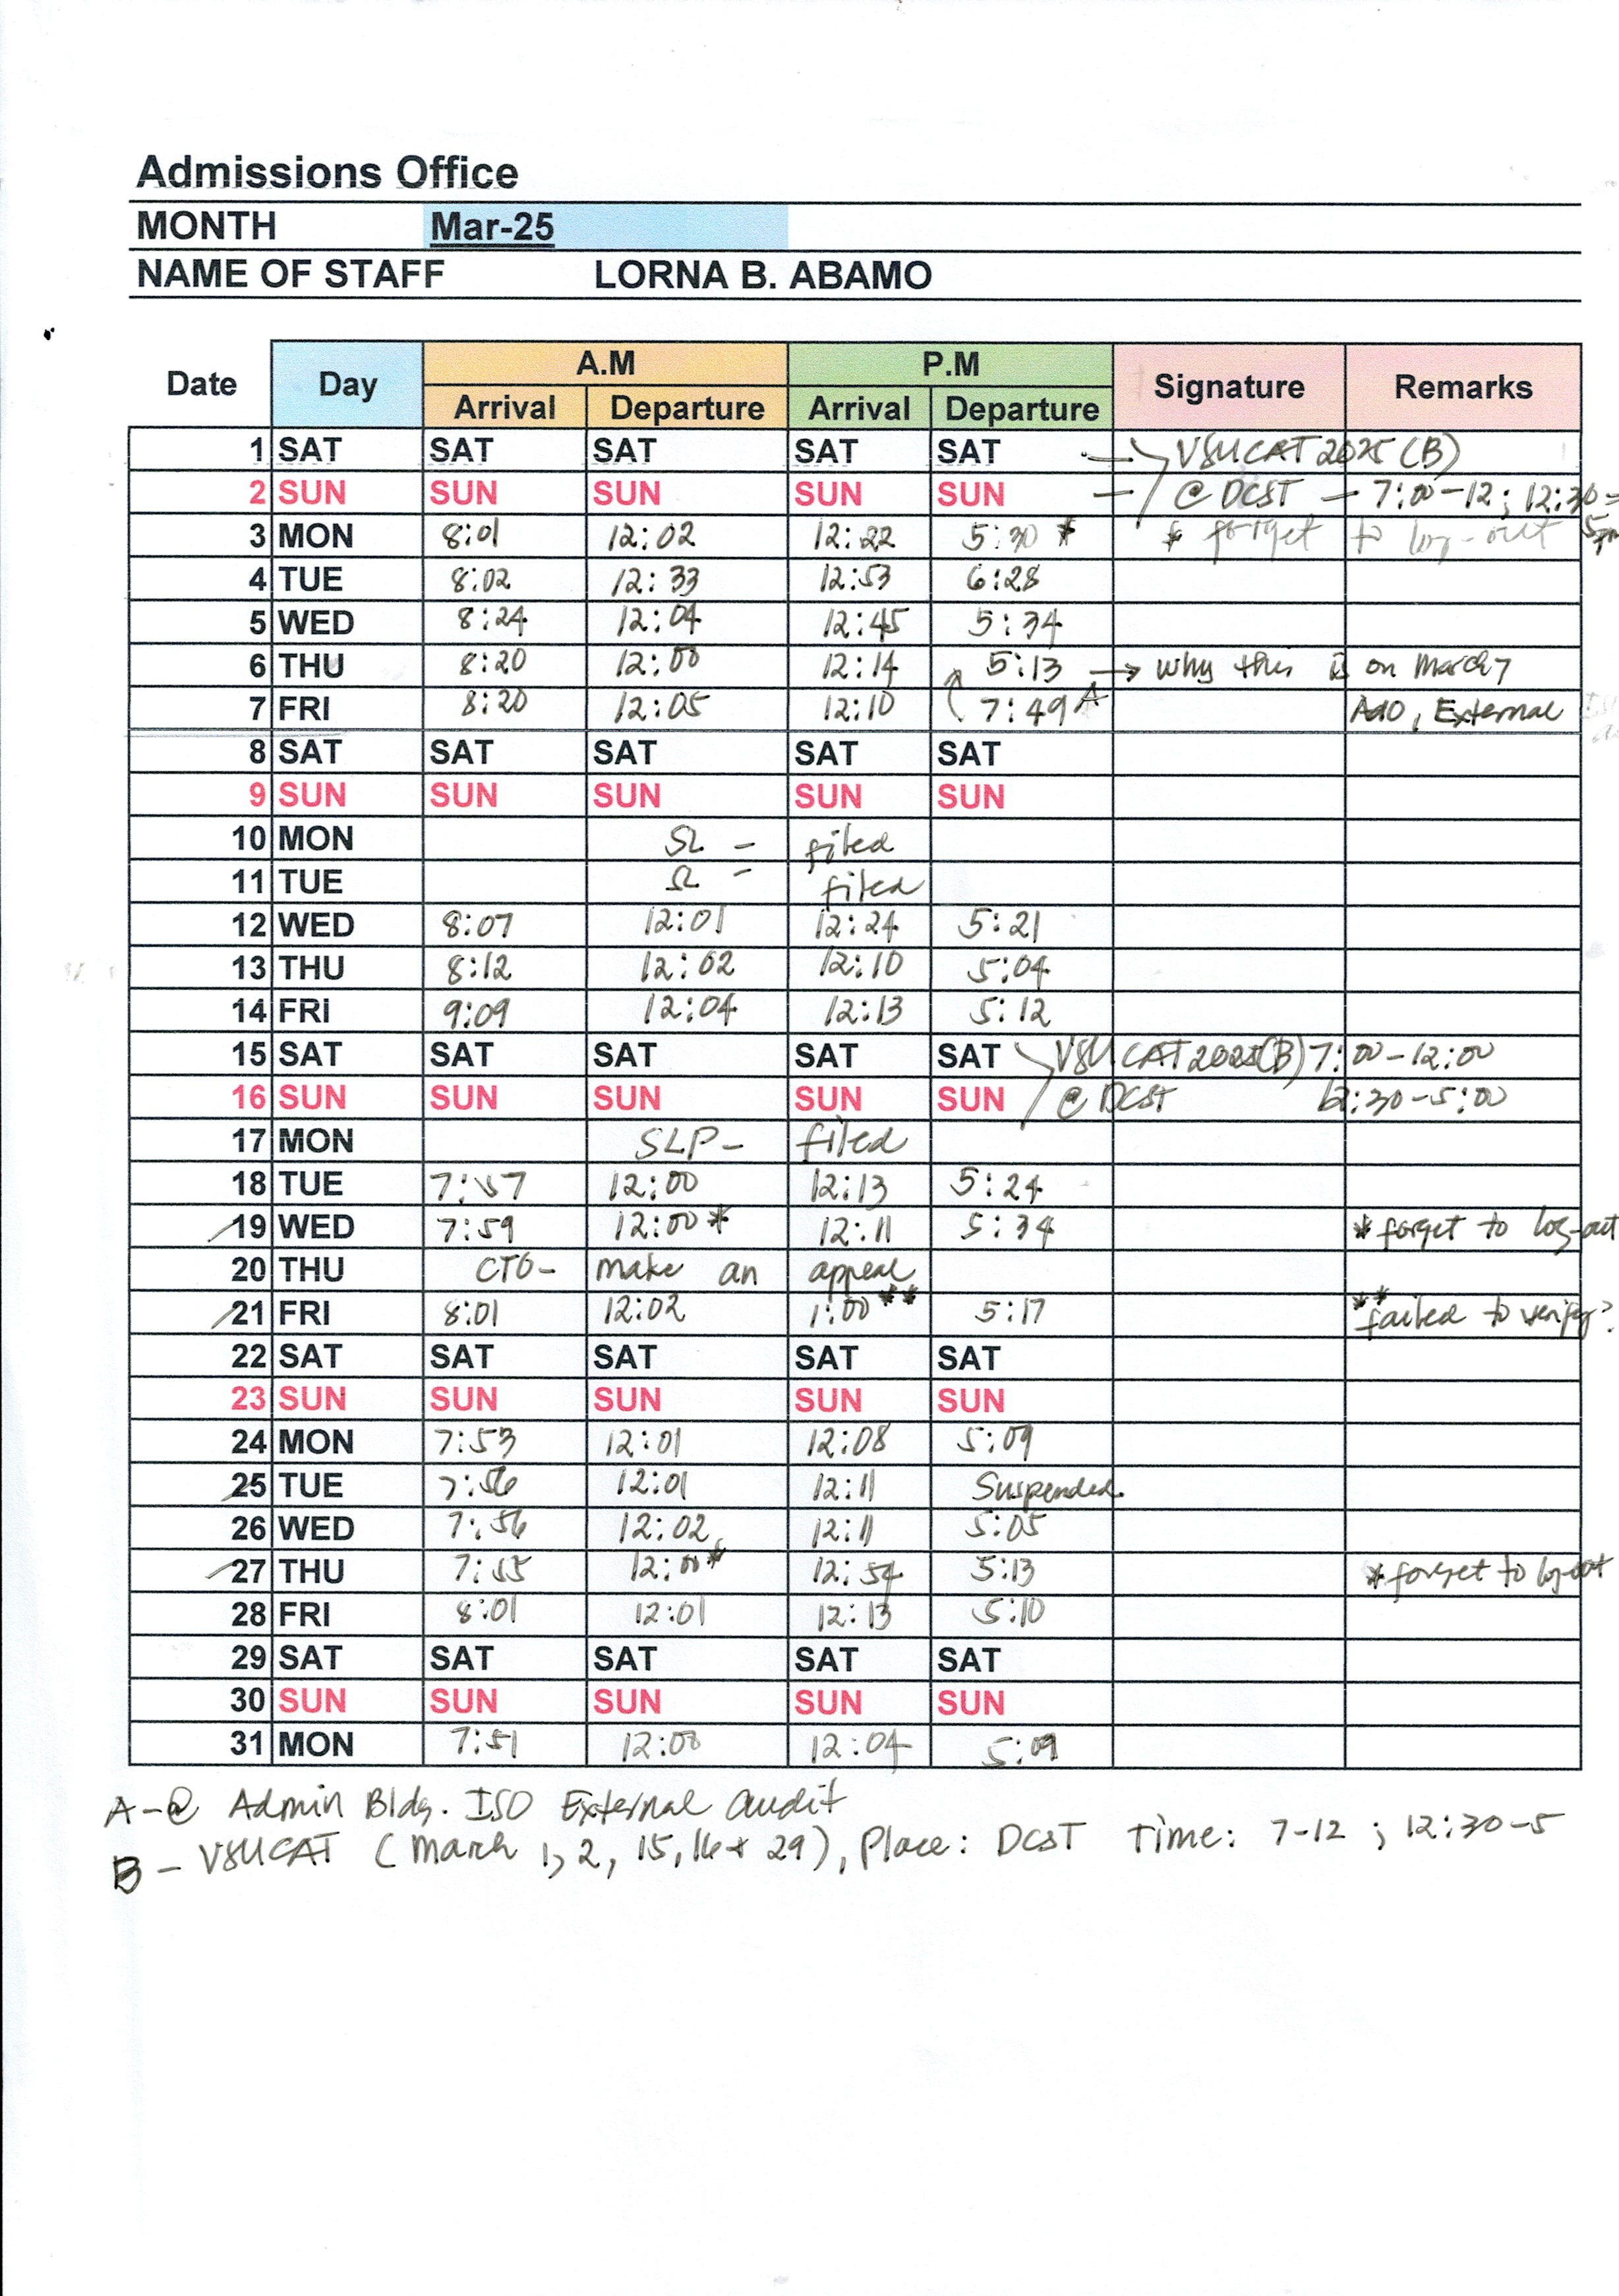 Admissions Office
MONTH Mar-25
NAME OF STAFF LORNA B. ABAMO
Date Day A.M P.M Signature Remarks
Arrival Departure Arrival Departure
1 SAT SAT SAT SAT SAT — VSUCAT 2025 (B)
2 SUN SUN SUN SUN SUN — @ DCST — 7:00-12; 12:30= 5pm
3 MON 8:01 12:02 12:22 5:30 * * forget to log-out
4 TUE 8:02 12:33 12:53 6:28
5 WED 8:24 12:04 12:45 5:34
6 THU 8:20 12:00 12:14 5:13 → why this is on March 7
7 FRI 8:20 12:05 12:10 7:49 A External
8 SAT SAT SAT SAT SAT
9 SUN SUN SUN SUN SUN
10 MON SL - filed
11 TUE SL - filed
12 WED 8:07 12:01 12:24 5:21
13 THU 8:12 12:02 12:10 5:04
14 FRI 9:09 12:04 12:13 5:12
15 SAT SAT SAT SAT SAT VSUCAT 2025(B) 7:00-12:00
16 SUN SUN SUN SUN SUN @ DCST 12:30-5:00
17 MON SLP- filed
18 TUE 7:57 12:00 12:13 5:24
19 WED 7:59 12:00* 12:11 5:34 * forget to log-out
20 THU CTO- make an appeal
21 FRI 8:01 12:02 1:00** 5:17 ** failed to verify?
22 SAT SAT SAT SAT SAT
23 SUN SUN SUN SUN SUN
24 MON 7:53 12:01 12:08 5:09
25 TUE 7:56 12:01 12:11 Suspended.
26 WED 7:56 12:02 12:11 5:05
27 THU 7:55 12:00* 12:54 5:13 * forget to log-out
28 FRI 8:01 12:01 12:13 5:10
29 SAT SAT SAT SAT SAT
30 SUN SUN SUN SUN SUN
31 MON 7:51 12:00 12:04 5:09
A-@ Admin Bldg. ISO External audit
B - VSUCAT (March 1, 2, 15, 16 & 29), Place: DCST Time: 7-12 ; 12:30-5